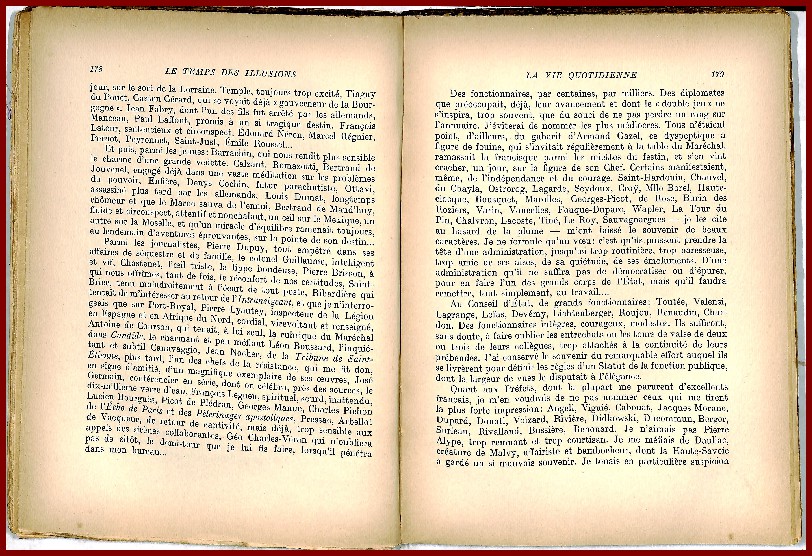 178
LE TEMPS DES ILLUSIONS
jour, sur le sort de la Lorraine. Temple, toujours trop excité, Tinguy
du Pouet, Gaston Gérard, qui se voyait déjà « gouverneur de la Bour-
gogne ». Jean Fabry, dont l'un des fils fut arrêté par les allemands,
Manceau, Paul Laffont, promis à un si tragique destin. François
Latour, sentencieux et circonspect, Édouard Néron, Marcel Régnier,
Pernot, Peyronnet, Saint-Just, Émile Roussel...
Et puis, parmi les jeunes : Barrachin, qui nous rendit plus sensible
le charme d'une grande vedette. Calzant, Ramazotti, Bertrand de
Jouvenel, engagé déjà dans une vaste méditation sur les problèmes
du pouvoir. Enfière, Denys Cochin, futur parachutiste, Ottavi,
assassiné plus tard sur les allemands. Louis Dunat, longtemps
chômeur et que le Maroc sauva de l'ennui. Bertrand de Maud'huy,
fluide et circonspect, attentif et nonchalant, un œil sur le Mexique, un
autre sur la Moselle, et qu'un miracle d'équilibre ramenait toujours,
au lendemain d'aventures éprouvantes, sur la pointe de son destin...
Parmi les journalistes, Pierre Dupuy, tout empêtré dans ses
affaires de séquestre et de famille, le colonel Guillaume, intelligent
et vif, Chastenet, l'œil triste, la lippe boudeuse, Pierre Brisson, à
qui nous offrîmes, tant de fois, le réconfort de nos certitudes, Saint-
Brice, tenu maladroitement à l'écart de tout poste, Ribardière qui
tentait de m'intéresser au retour de l'Intransigeant, et que je n'interro-
geais que sur Port-Royal, Pierre Lyautey, inspecteur de la Légion
en Espagne et en Afrique du Nord, cordial, virevoltant et renseigné,
Antoine de Courson, qui tenait, à lui seul, la rubrique du Maréchal
dans Candide, le charmant et peu méfiant Léon Boussard, l'inquié-
tant et subtil Sauvageon, Jean Nocher, de la Tribune de Saint-
Étienne, plus tard, l'un des chefs de la résistance, qui me fit don,
en signe d'amitié, d'un magnifique exemplaire de ses œuvres, José
Germain, conférencier en série, dont on célébra, près des sources, le
dix-millième verre d'eau. François Leguen, spirituel, sourd, inattendu,
Lucien Bourguès, Picot de Plédran, Georges Manue, Charles Pichon
de l'Écho de Paris et des Pèlerinages apostoliques, Pressac, Arbellot
de Vacqueur, de retour de captivité, mais déjà, trop sensible aux
appels des riches collaborantes, Géo Charles-Véran qui n'oubliera
pas de sitôt, le demi-tour que je lui fis faire, lorsqu'il pénétra
dans mon bureau...
LA VIE QUOTIDIENNE
179
Des fonctionnaires, par centaines, par milliers. Des diplomates
que préoccupait, déjà, leur avancement et dont le « double jeu » ne
s'inspira, trop souvent, que du souci de ne pas perdre un rang sur
l'annuaire. J'éviterai de nommer les plus médiocres. Tous n'étaient
point, d'ailleurs, du gabarit d'Armand Gazel, ce dyspeptique à
figure de fouine, qui s'invitait régulièrement à la table du Maréchal
ramassait la francisque parmi les miettes du festin, et s'en vint
cracher, un jour, sur la figure de son Chef. Certains manifestaient,
même, de l'indépendance et du courage. Saint-Hardouin, Chauvel,
du Chayla, Ostrorog, Lagarde, Seydoux, Crouy, Mlle Borel, Haute-
clocque, Bousquet, Marolles, Georges-Picot, de Rose, Burin des
Roziers, Varin, Vaucelles, Fouque-Duparc, Wapler, La Tour du
Pin, Chalvron, Lacoste, Tiné, Le Roy, Sauvagnargues — je les cite
au hasard de la plume — m'ont laissé le souvenir de beaux
caractères. Je ne formule qu'un vœu : c'est qu'ils puissent, prendre la
tête d'une administration, jusqu'ici trop routinière, trop paresseuse,
trop amie de ses aises, de sa quiétude, de ses émoluments. D'une
administration qu'il ne suffira pas de démocratiser ou d'épurer,
pour en faire l'un des grands corps de l'État, mais qu'il faudra
remettre, tout simplement, au travail...
Au Conseil d'État, de grands fonctionnaires : Toutée, Valensi,
Lagrange, Latus, Devémy, Lichtenberger, Roujou, Renaudin, Char-
don. Des fonctionnaires intègres, courageux, modestes. Ils suffirent,
sans doute, à faire oublier les entrechats ou les tours de valse de deux
ou trois de leurs collègues, trop attachés à la continuité de leurs
prébendes. J'ai conservé le souvenir du remarquable effort auquel ils
se livrèrent pour définir les règles d'un Statut de la fonction publique,
dont la largeur de vues le disputait à l'élégance.
Quant aux Préfets, dont la plupart me parurent d'excellents
français, je m'en voudrais de ne pas nommer ceux qui me firent
la plus forte impression : Angeli, Viguié, Cabouat, Jacques Morane,
Dupard, Donati, Voizard, Rivière, Didkowski, Ducommun, Berger,
Surleau, Rivalland, Bussière, Renouard. Je n'aimais pas Pierre
Alype, trop remuant et trop courtisan. Je me méfiais de Dauliac,
créature de Malvy, affairiste et bambocheur, dont la Haute-Savoie
a gardé un si mauvais souvenir. Je tenais en particulière suspicion